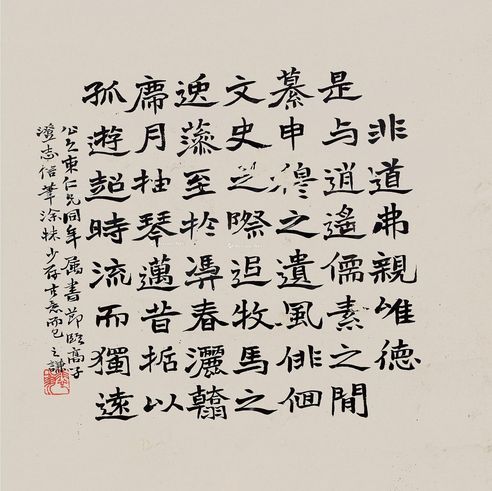 非道弗親唯德
是与逍遙儒素之間
慕申穆之遺風俳佪
文史之際追牧馬之
逸藻至於馮春灑翰
席月抽琴邁昔哲以
孤遊超時流而獨遠
仁兄同年屬書節臨高子
澄志借筆塗抹少存古意而已之謙